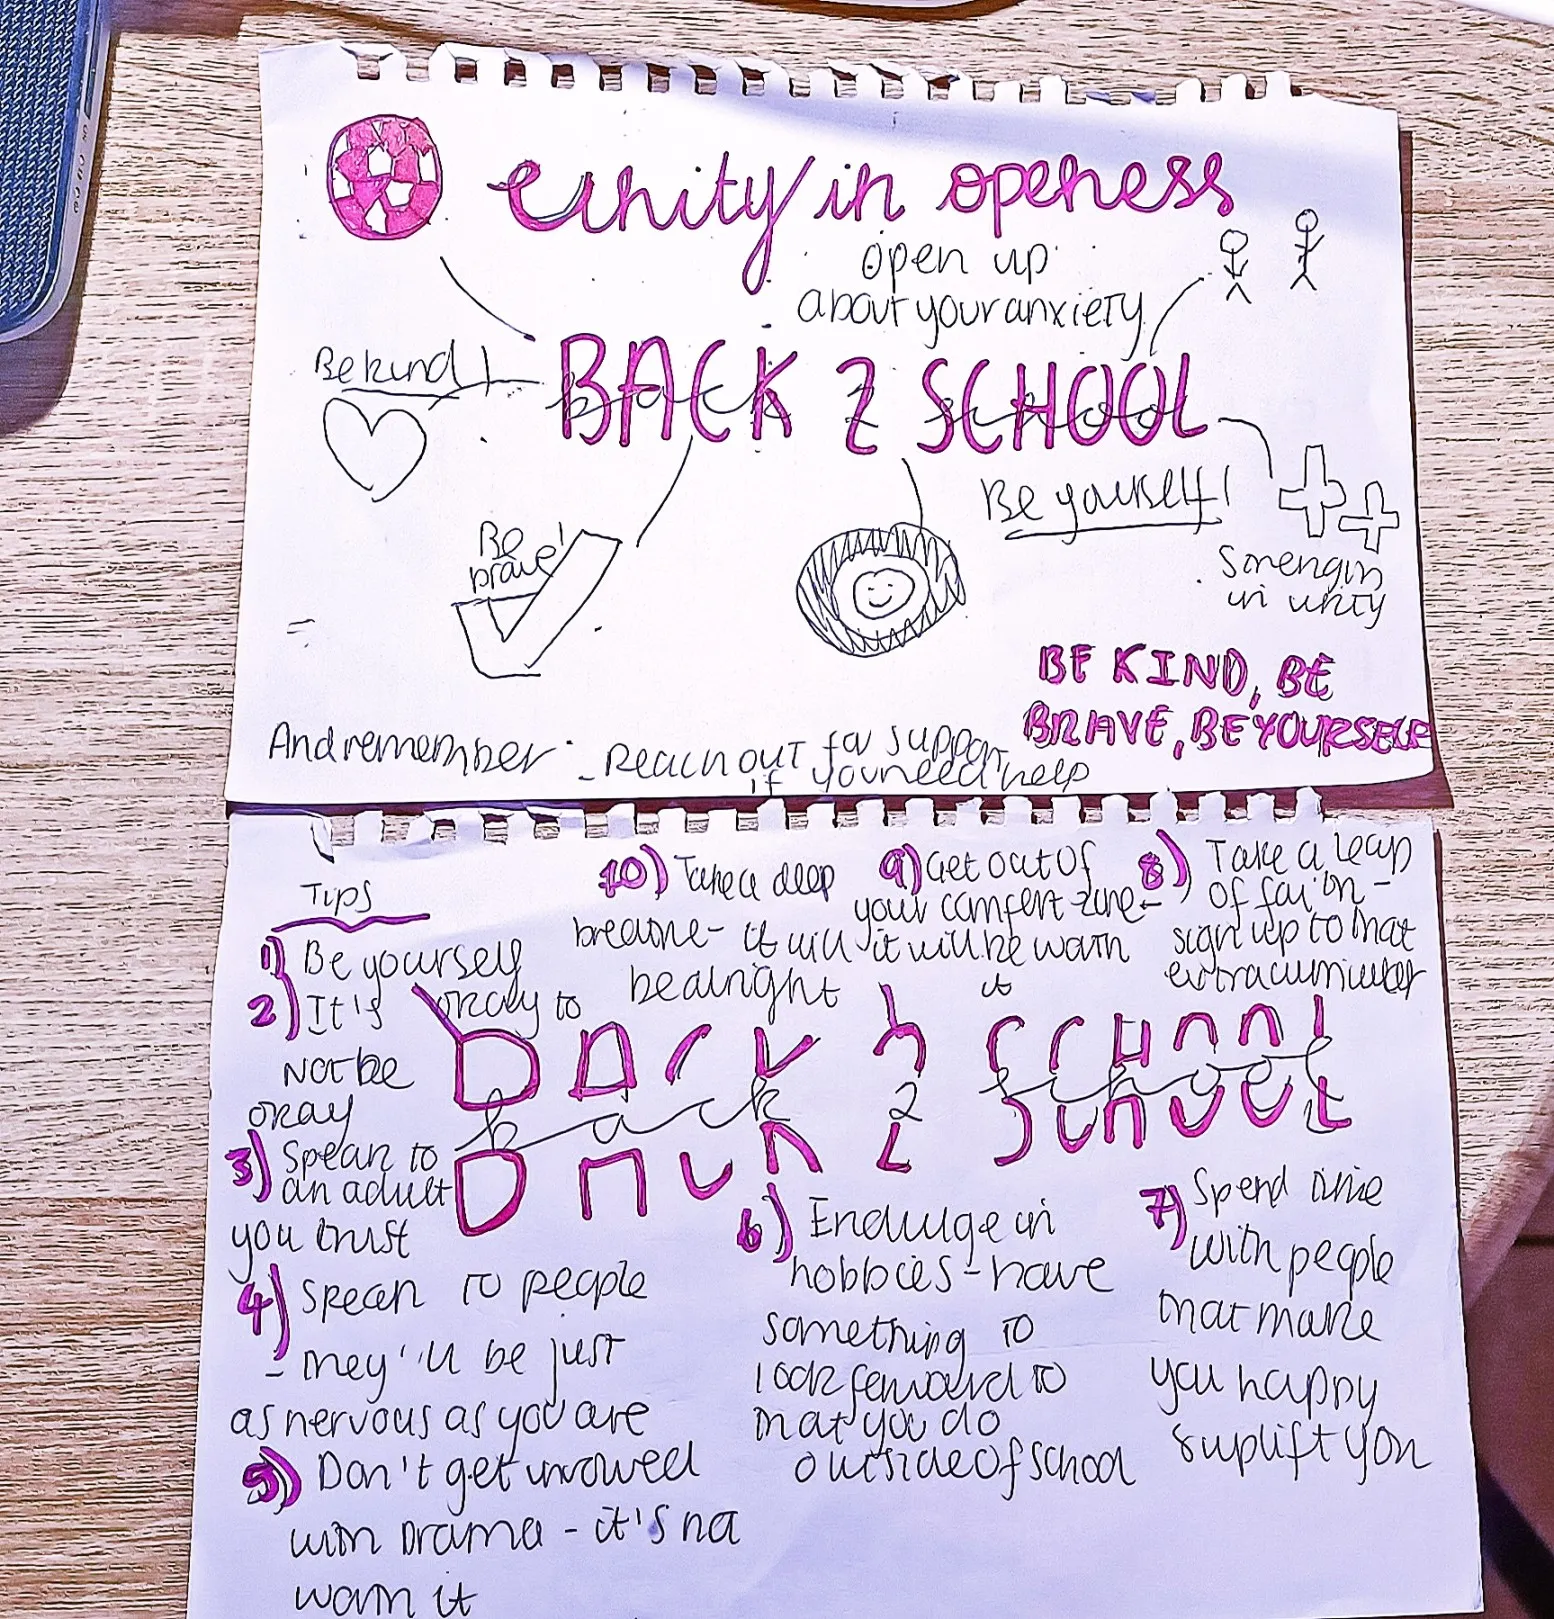 Unity in openess
open up
about your anxiety
Be kind!
BACK 2 SCHOOL
back 2 school
Be yourself!
Be
brave!
Strength
in unity
BE KIND, BE
BRAVE, BE YOURSELF
And remember: - Reach out for support
if you need help
Tips
1) Be yourself
2) It's okay to
Not be
okay
3) Speak to
an adult
you trust
4) Speak to people
- they'll be just
as nervous as you are
5) Don't get involved
with Drama - it's not
worth it
BACK 2 SCHOOL
back 2 school
6) Endulge in
hobbies - have
something to
look forward to
that you do
outside of school
7) Spend time
with people
that make
you happy
& uplift you
8) Take a leap
of faith -
sign up to that
extracurricular
9) Get out of
your comfort zone -
it will be worth
it
10) Take a deep
breathe - it will
be alright